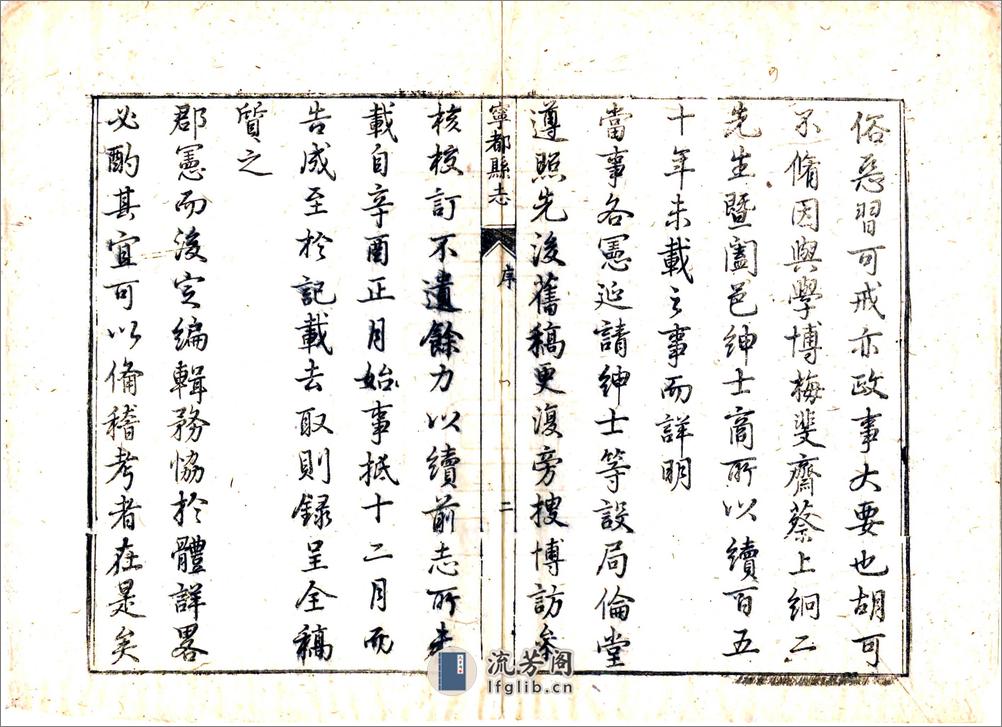 俗惡習可戒亦政事大要也胡可
不脩因與學博梅斐齋蔡上絅二
先生暨闔邑紳士商所以續百五
十年未載之事而詳明
當事各憲延請紳士等設局倫堂
遵照先後舊稿更復旁搜博訪參
寧都縣志
序
二
核校訂不遺餘力以續前志所未
載自辛酉正月始事抵十二月而
告成至於記載去取則録呈全稿
質之
郡憲而後定編輯務協於體詳畧
必酌其宜可以備稽考者在是矣
流芳阁
lfglib.cn